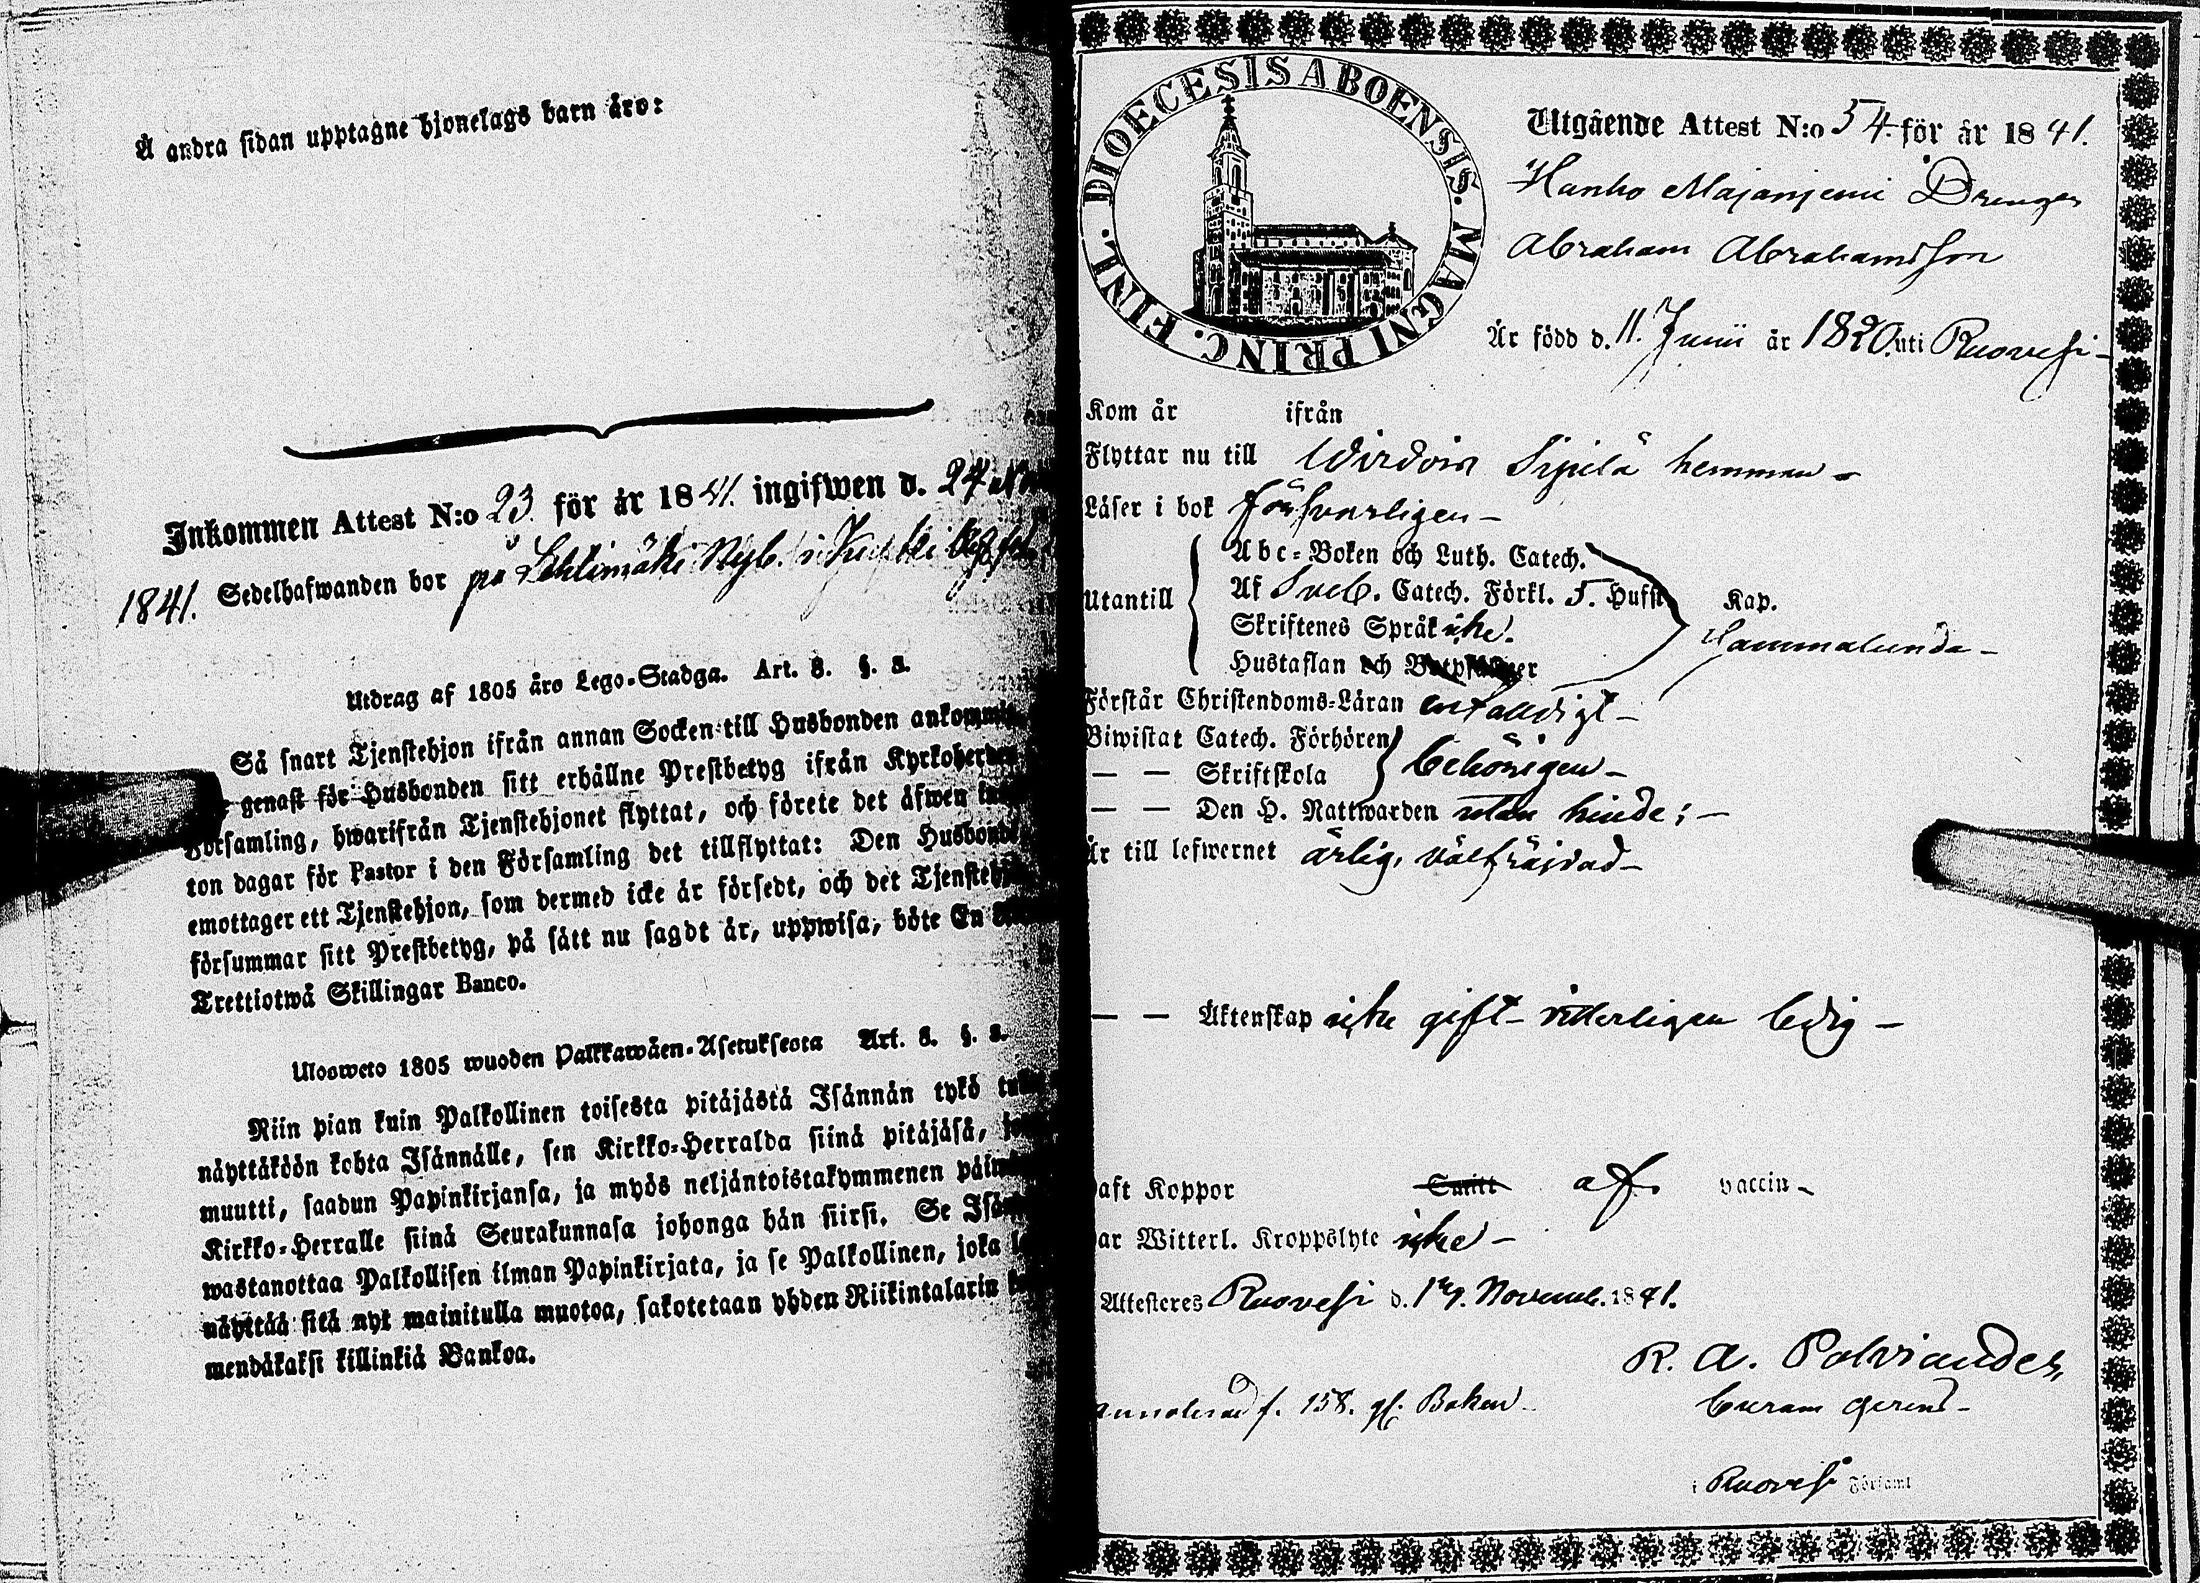 Å andra sidan upptagne hjonelags barn äro:
Inkommen Attest N:o 23. för år 1841. ingifwen d. 24
1841. Sedelhafwanden bor på Lehtimäki Nyb. i
Utdrag af 1805 års Lego-Stadga. Art. 8. §. 2.
Så snart Tjenstehjon ifrån annan Socken till Husbonden
genast för Husbonden sitt erhållne Prestbetyg ifrån
Församling, hwarifrån Tjenstehjonet flyttat, och förete det äfwen
ton dagar för Pastor i den Församling det tillflyttat: Den
emottager ett Tjenstehjon, som dermed icke är försedt, och det
försummar sitt Prestbetyg, på sätt nu sagdt är, uppwisa, böte En
Trettiotwå Skillingar Banco.
Ulosweto 1805 wuoden Palkkawäen-Asetuksesta Art. 8. §. 2.
Niin pian kuin Palkollinen toisesta pitäjästä Isännän tykö
näyttäköön kohta Isännälle, sen Kirkko-Herralda siinä pitäjäsä,
muutti, saadun Papinkirjansa, ja myös neljäntoistakymmenen
Kirkko-Herralle siinä Seurakunnasa johonga hän siirsi. Se
wastanottaa Palkollisen ilman Papinkirjata, ja se Palkollinen, joka
näyttää sitä nyt mainitulla muotoa, sakotetaan yhden Riikintalarin
mendäkaksi killinkiä Bankoa.
DIOECESIS ABOENSIS. MAGNI PRINC. FINL.
Utgående Attest N:o 54. för år 1841.
Hanho Majanjemi Drengen
Abraham Abrahamsson
Är född d. 11. Junii år 1820. uti Ruovesi
Kom år ifrån
Flyttar nu till Wirdois Sipilä hemman
Läser i bok försvarligen
Abc-Boken och Luth. Catech.
Utantill Af Sveb. Catech. Förkl. 5. Hufst Kap.
Skriftenes Språk icke. Sammalunda
Hustaflan och
Förstår Christendoms-Läran enfaldigt
Biwistat Catech. Förhören
— — Skriftskola behörigen
— — Den H. Nattwarden utan hinder;
Är till lefwernet ärlig, välfräjdad
— — Äktenskap icke gift vitterligen ledig
Haft Koppor af vaccin
Har Witterl. Kroppslyte icke
Attesteres Ruovesi d. 19. Novemb. 1841.
R. A. Polviander,
Annoterad f. 158. gl. Boken Curam gerens
i Ruovesi Församl